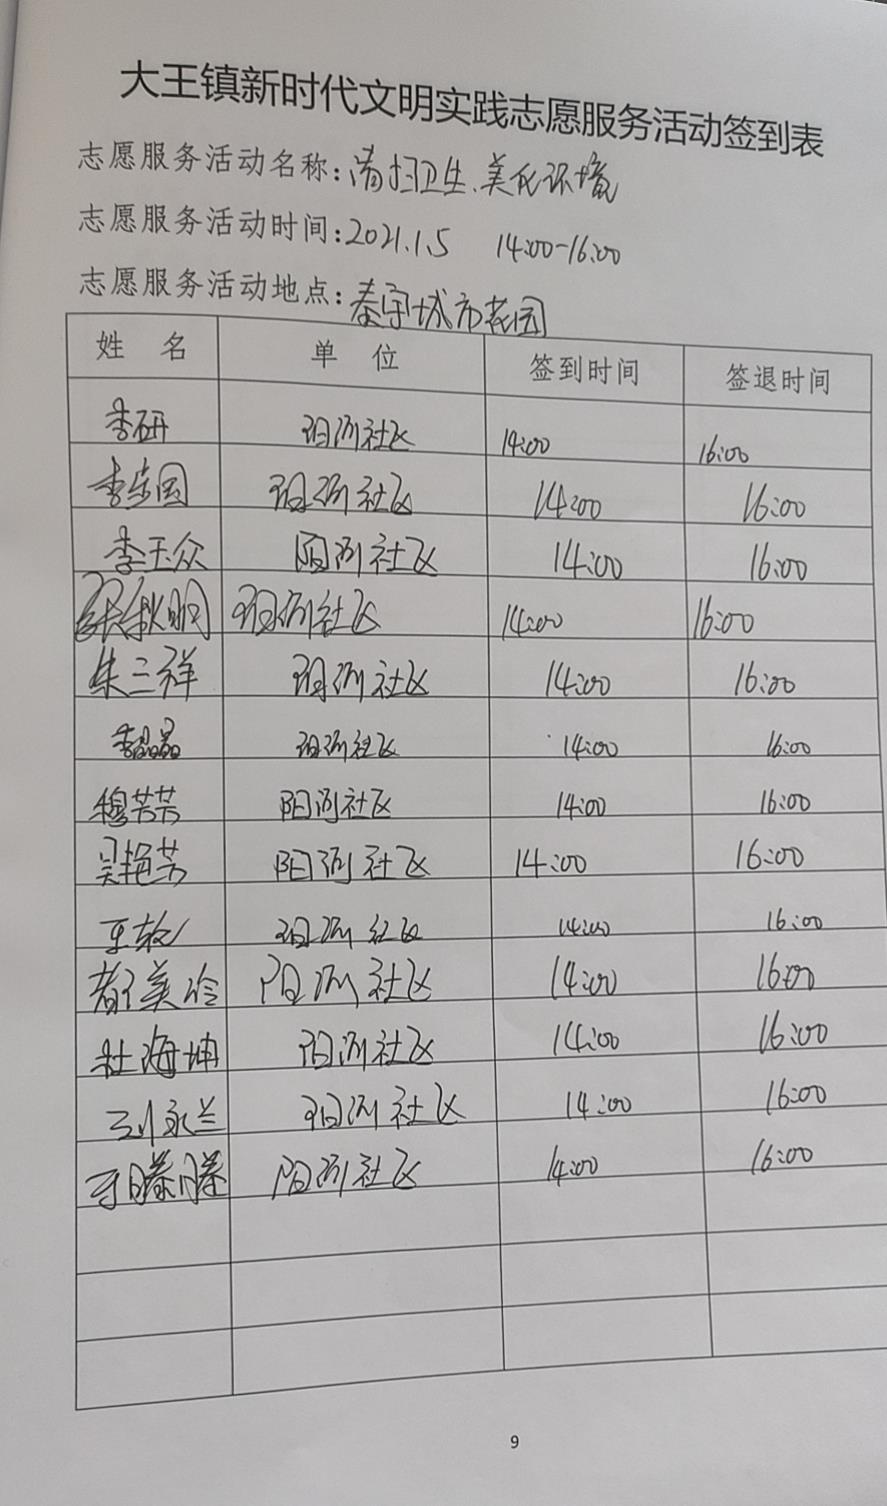 大王镇新时代文明实践志愿服务活动签到表
志愿服务活动名称:清扫卫生、美化环境
志愿服务活动时间:2021.1.5 14:00-16:00
志愿服务活动地点:泰宇城市花园
姓 名 单 位 签到时间 签退时间
李研 阳河社区 14:00 16:00
李安园 阳河社区 14:00 16:00
李玉众 阳河社区 14:00 16:00
张秋明 阳河社区 14:00 16:00
朱三祥 阳河社区 14:00 16:00
李晶晶 阳河社区 14:00 16:00
穆芳芳 阳河社区 14:00 16:00
吴艳芳 阳河社区 14:00 16:00
阳河社区 14:00 16:00
美玲 阳河社区 14:00 16:00
杜海坤 阳河社区 14:00 16:00
刘永兰 阳河社区 14:00 16:00
阳河社区 14:00 16:00
9